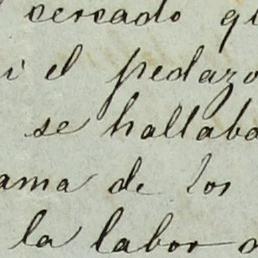 cercado q
i el pedazo
se hallaba
ama de los
la labor